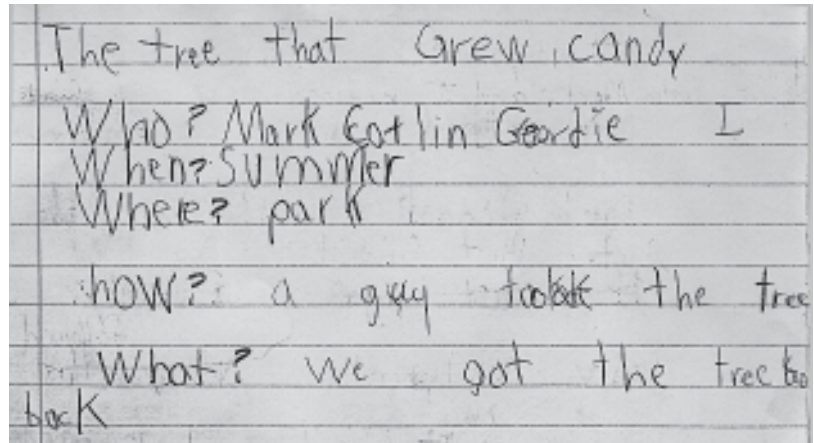 The tree that Grew candy
Who? Mark Eotlin Geordie I
When? Summer
Where? park
how? a guy took the tree
What? we got the tree
back